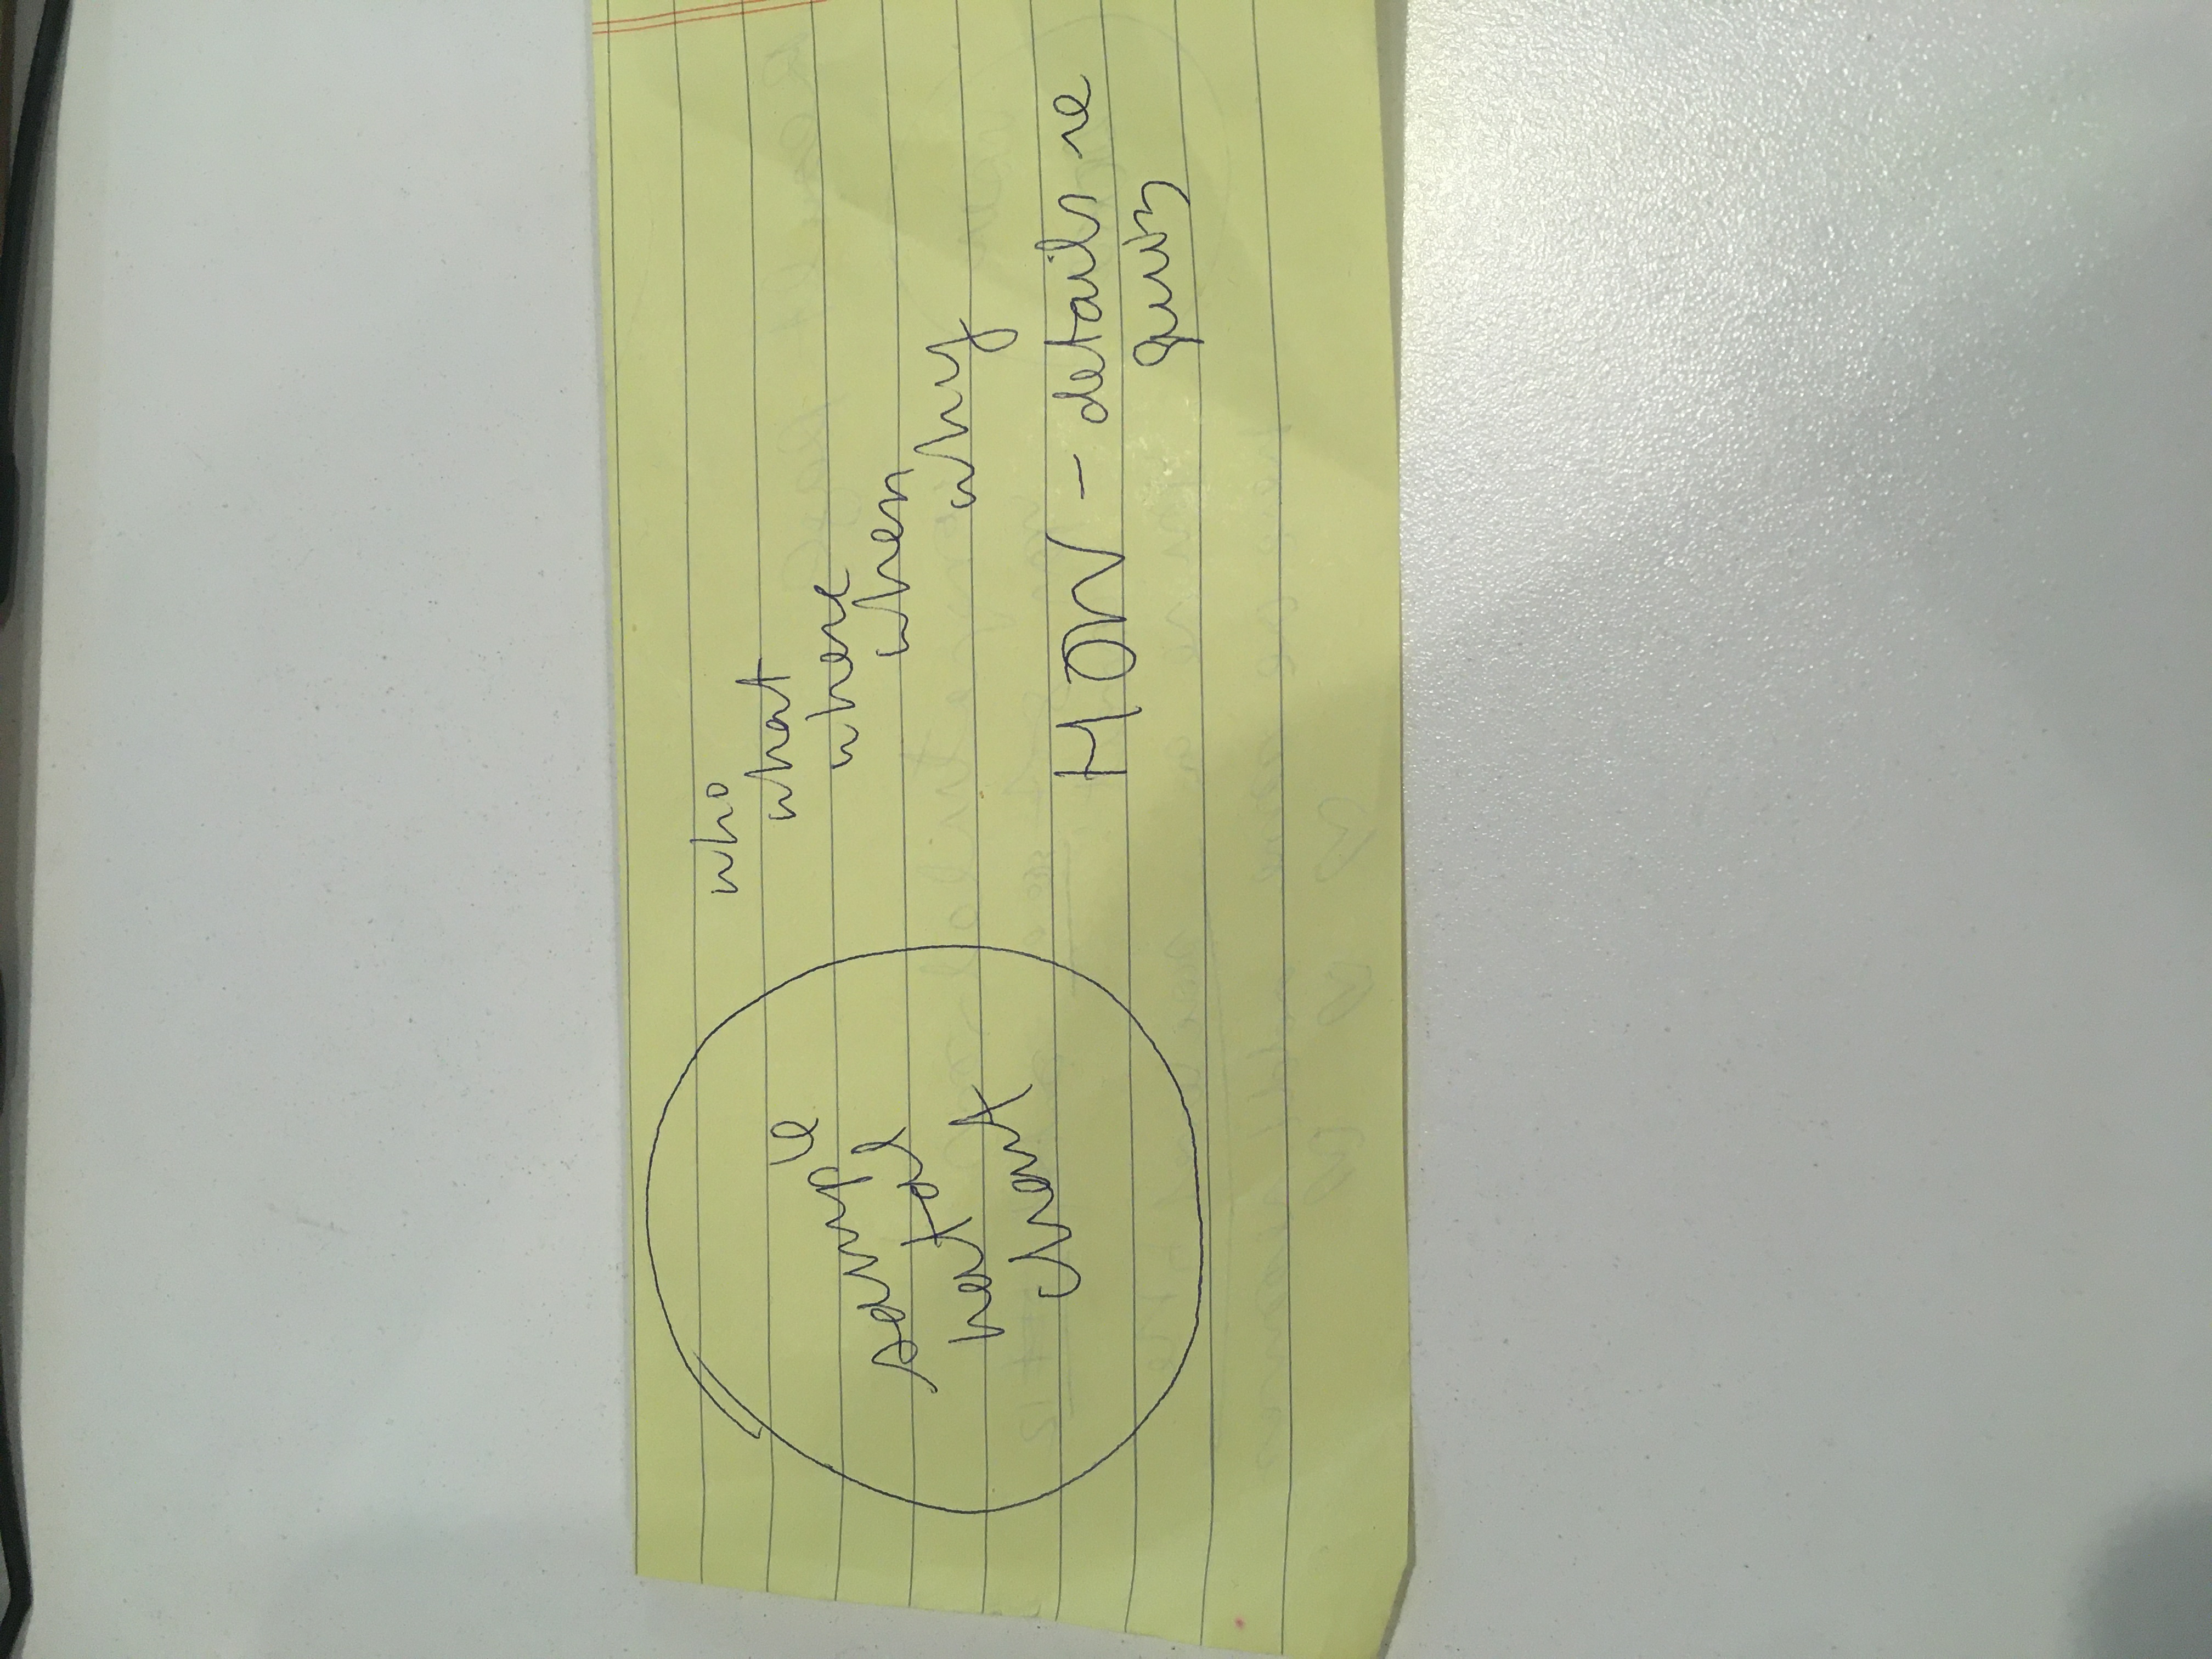 sample
natal
chart
who
what
where
when
why
HOW - details re
quiz